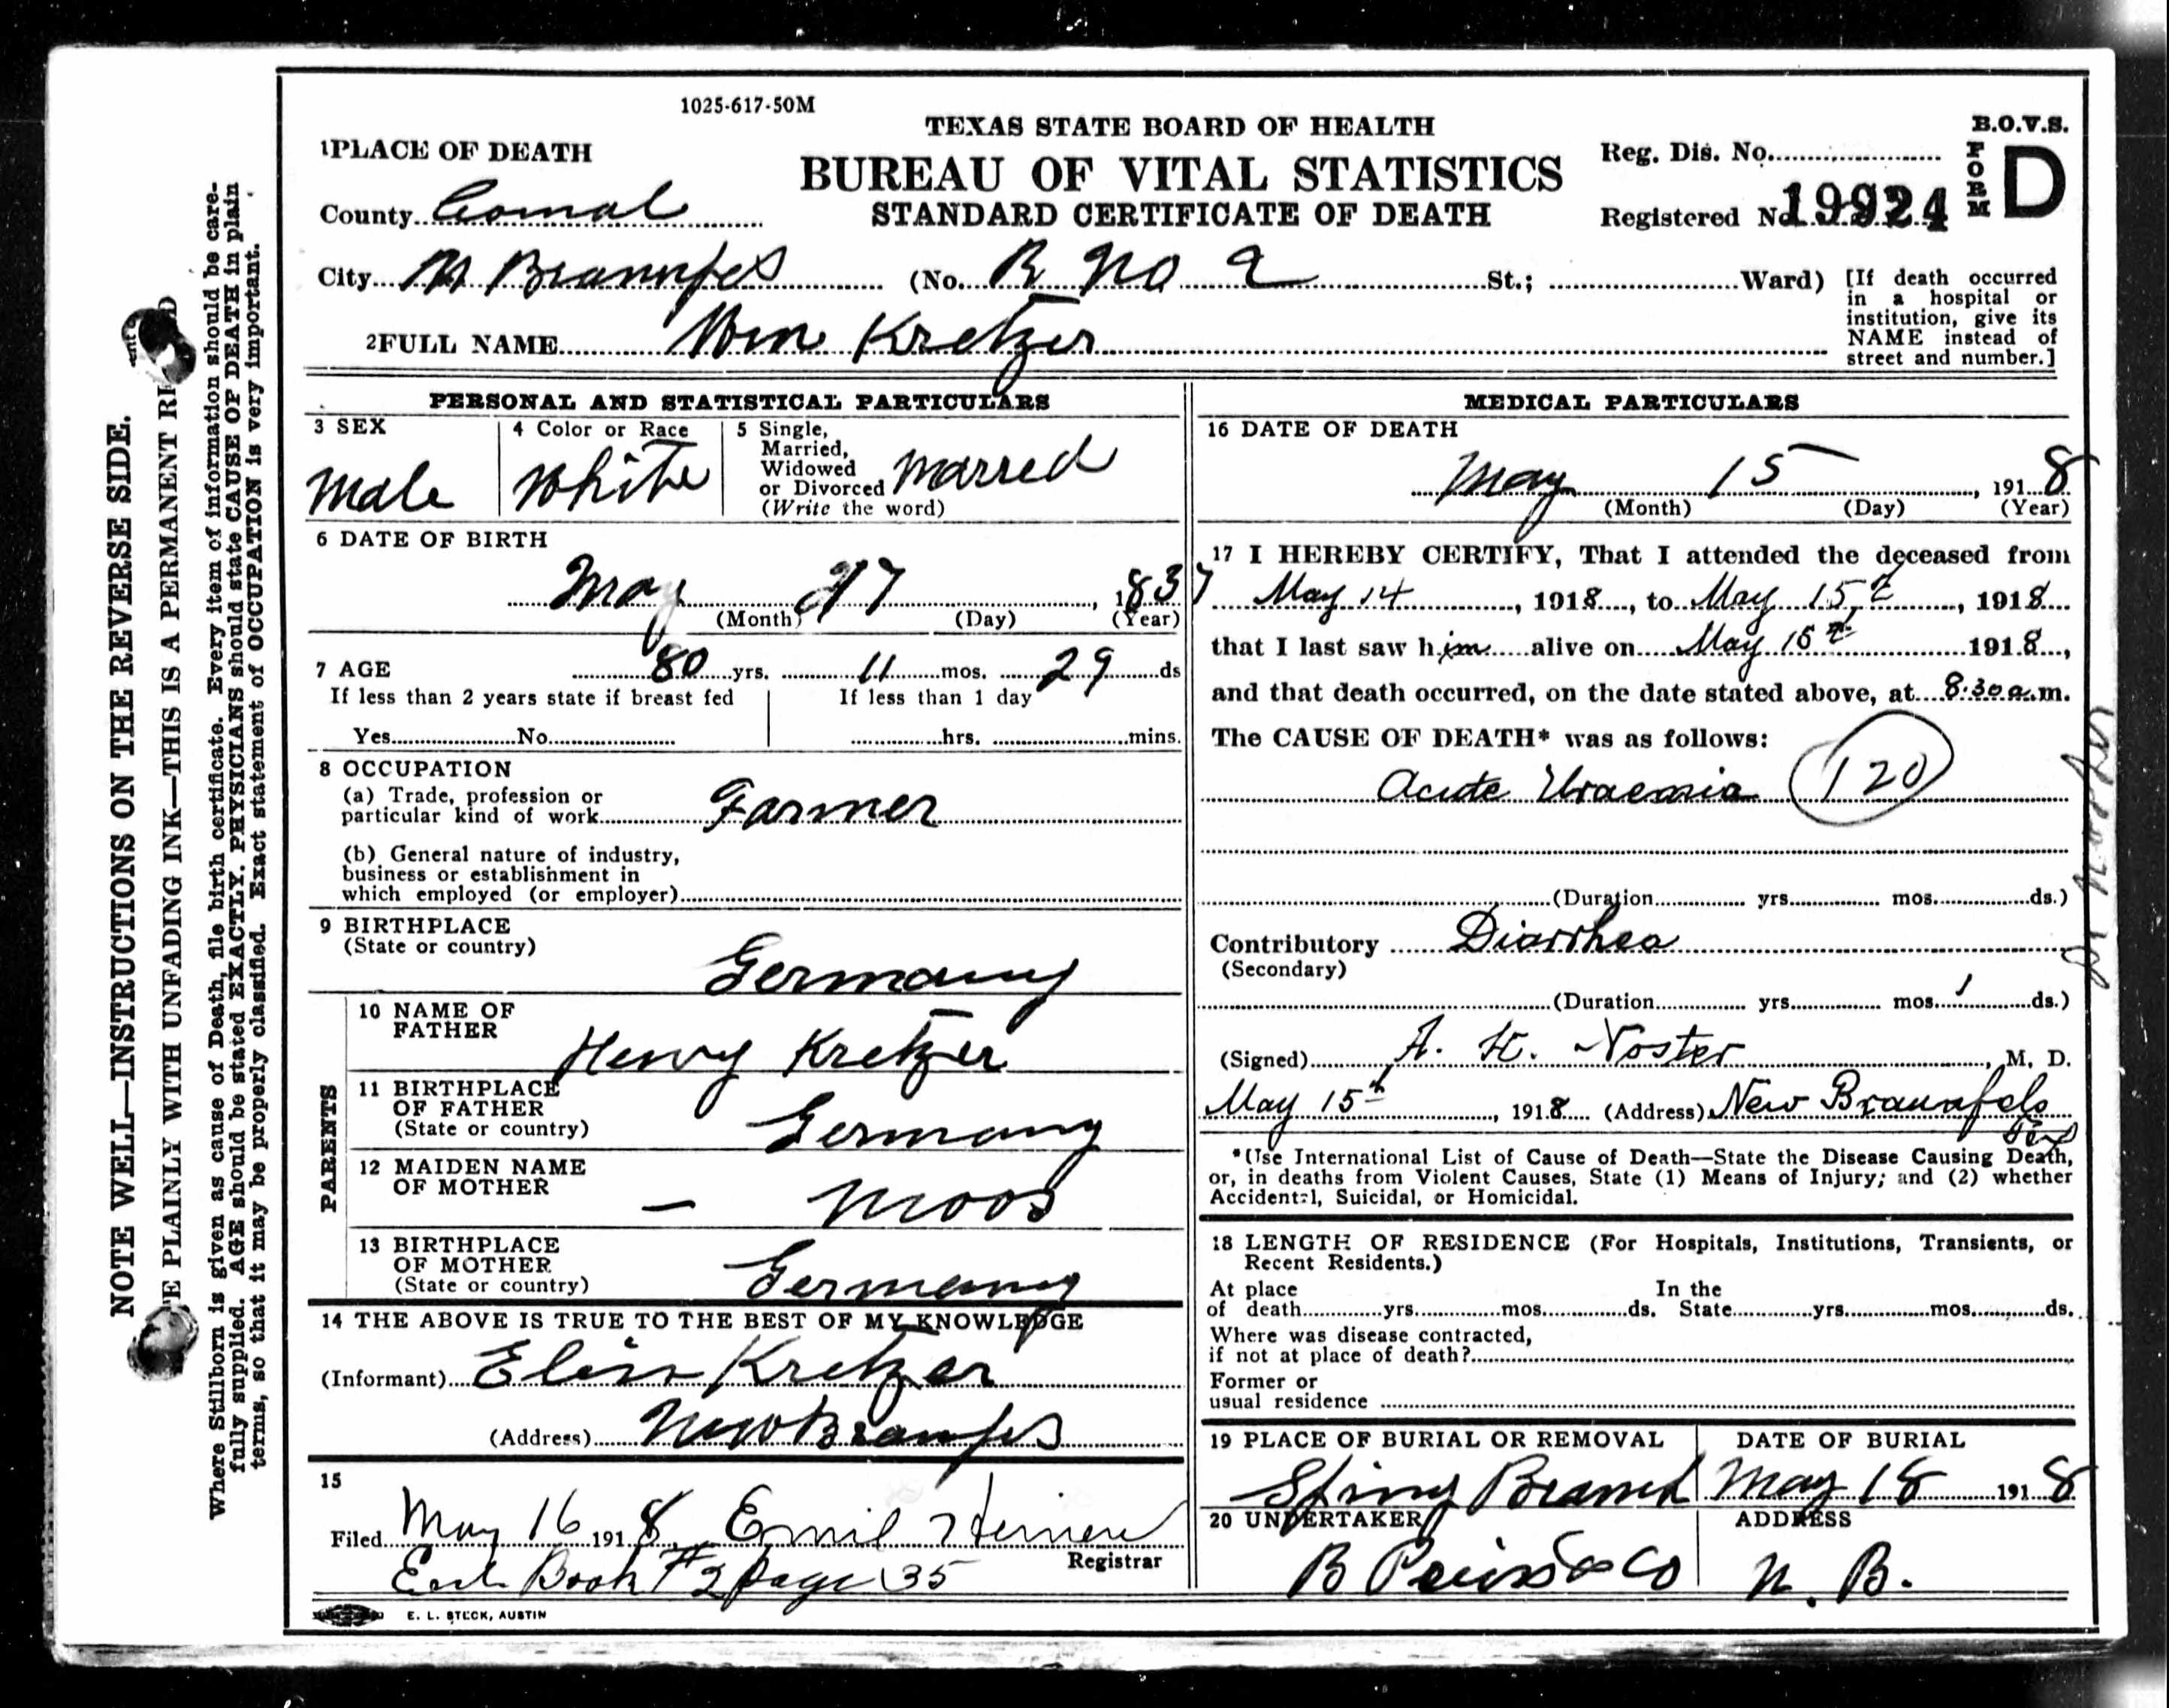 1025-617-50M
TEXAS STATE BOARD OF HEALTH
BUREAU OF VITAL STATISTICS
STANDARD CERTIFICATE OF DEATH
B.O.V.S.
FORM D
Reg. Dis. No.
Registered No. 19924
1 PLACE OF DEATH
County Comal
City N Braunfels (No. R No 2 St.; Ward)
[If death occurred
in a hospital or
institution, give its
NAME instead of
street and number.]
2 FULL NAME Wm Kretzer
PERSONAL AND STATISTICAL PARTICULARS
3 SEX
Male
4 Color or Race
White
5 Single,
Married,
Widowed
or Divorced
(Write the word)
Marred
6 DATE OF BIRTH
May 17, 1837
(Month) (Day) (Year)
7 AGE 80 yrs. 11 mos. 29 ds
If less than 2 years state if breast fed
Yes No
If less than 1 day
hrs. mins.
8 OCCUPATION
(a) Trade, profession or
particular kind of work Farmer
(b) General nature of industry,
business or establishment in
which employed (or employer)
9 BIRTHPLACE
(State or country)
Germany
PARENTS
10 NAME OF
FATHER
Henry Kretzer
11 BIRTHPLACE
OF FATHER
(State or country)
Germany
12 MAIDEN NAME
OF MOTHER
— Moos
13 BIRTHPLACE
OF MOTHER
(State or country)
Germany
14 THE ABOVE IS TRUE TO THE BEST OF MY KNOWLEDGE
(Informant) Kretzer
(Address) New Braunfels
15
Filed May 16 1918 Emil Heinen
Registrar
Book #2 page 35
E. L. STECK, AUSTIN
MEDICAL PARTICULARS
16 DATE OF DEATH
May 15, 1918
(Month) (Day) (Year)
17 I HEREBY CERTIFY, That I attended the deceased from
May 14, 1918, to May 15th, 1918
that I last saw him alive on May 15th 1918,
and that death occurred, on the date stated above, at 8:30 a.m.
The CAUSE OF DEATH* was as follows:
Acute Uraemia 120
(Duration yrs. mos. ds.)
Contributory Diarrhea
(Secondary)
(Duration yrs. mos. 1 ds.)
(Signed) A. H. Noster, M. D.
May 15th, 1918 (Address) New Braunfels
Tex
*Use International List of Cause of Death—State the Disease Causing Death,
or, in deaths from Violent Causes, State (1) Means of Injury; and (2) whether
Accidental, Suicidal, or Homicidal.
18 LENGTH OF RESIDENCE (For Hospitals, Institutions, Transients, or
Recent Residents.)
At place In the
of death yrs. mos. ds. State yrs. mos. ds.
Where was disease contracted,
if not at place of death?
Former or
usual residence
19 PLACE OF BURIAL OR REMOVAL
Spring Branch
DATE OF BURIAL
May 18 1918
20 UNDERTAKER
B Preiss & Co
ADDRESS
N. B.
Dr Noster
NOTE WELL—INSTRUCTIONS ON THE REVERSE SIDE.
PLAINLY WITH UNFADING INK—THIS IS A PERMANENT
Where Stillborn is given as cause of Death, file birth certificate. Every item of information should be care-
fully supplied. AGE should be stated EXACTLY. PHYSICIANS should state CAUSE OF DEATH in plain
terms, so that it may be properly classified. Exact statement of OCCUPATION is very important.